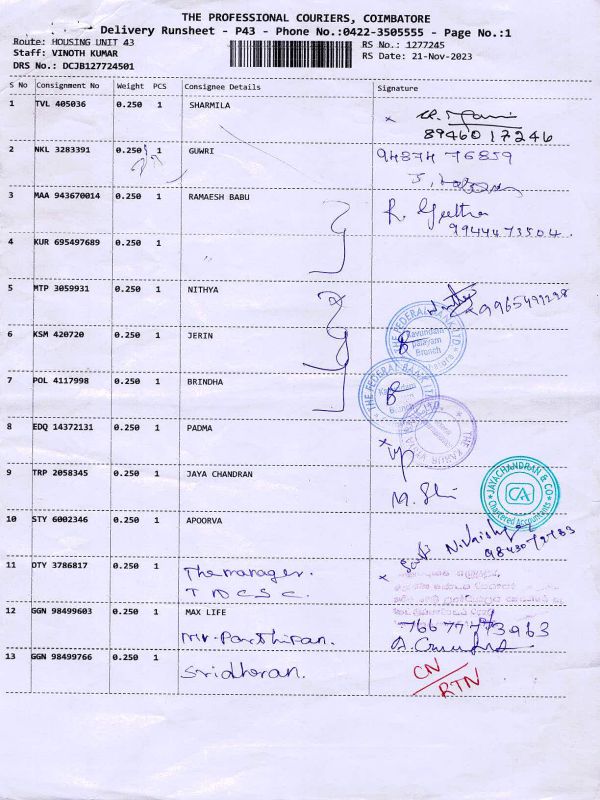 THE PROFESSIONAL COURIERS, COIMBATORE
Delivery Runsheet - P43 - Phone No.:0422-3505555 - Page No.:1
Route: HOUSING UNIT 43
RS No.: 1277245
Staff: VINOTH KUMAR
RS Date: 21-Nov-2023
DRS No.: DCJB127724501
S No Consignment No Weight PCS Consignee Details Signature
1 TVL 405036 0.250 1 SHARMILA
8946017246
2 NKL 3283391 0.250 1 GUWRI
94874 76859
3 MAA 943670014 0.250 1 RAMAESH BABU
R. Geetha
9944473504
4 KUR 695497689 0.250 1
5 MTP 3059931 0.250 1 NITHYA
9965499298
6 KSM 420720 0.250 1 JERIN
THE FEDERAL BANK LTD
Kavundam
palayam
Branch
7 POL 4117998 0.250 1 BRINDHA
THE FEDERAL BANK LTD
Branch
8 EDQ 14372131 0.250 1 PADMA
9 TRP 2058345 0.250 1 JAYA CHANDRAN
JAYACHANDRAN & CO
CA
Chartered Accountants
10 STY 6002346 0.250 1 APOORVA
11 DTY 3786817 0.250 1 The manager.
T N C S C.
12 GGN 98499603 0.250 1 MAX LIFE
Mr. Parthipan.
13 GGN 98499766 0.250 1 Sridharan.
CN
RTN